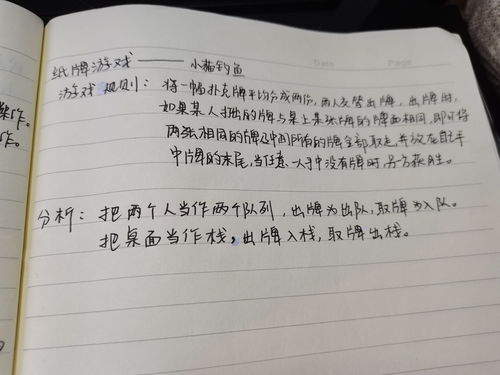 纸牌游戏 —— 小猫钓鱼
Date Page
游戏规则：将一幅扑克牌平均分成两份，两人交替出牌，出牌时，
如果某人出的牌与桌上某张牌的牌面相同，即可将
两张相同的牌及中间所有的牌全部取走，并放在自己手
中牌的末尾，当任意一人手中没有牌时，另一方获胜。
分析：把两个人当作两个队列，出牌为出队，取牌为入队。
把桌面当作栈，出牌入栈，取牌出栈。
作。